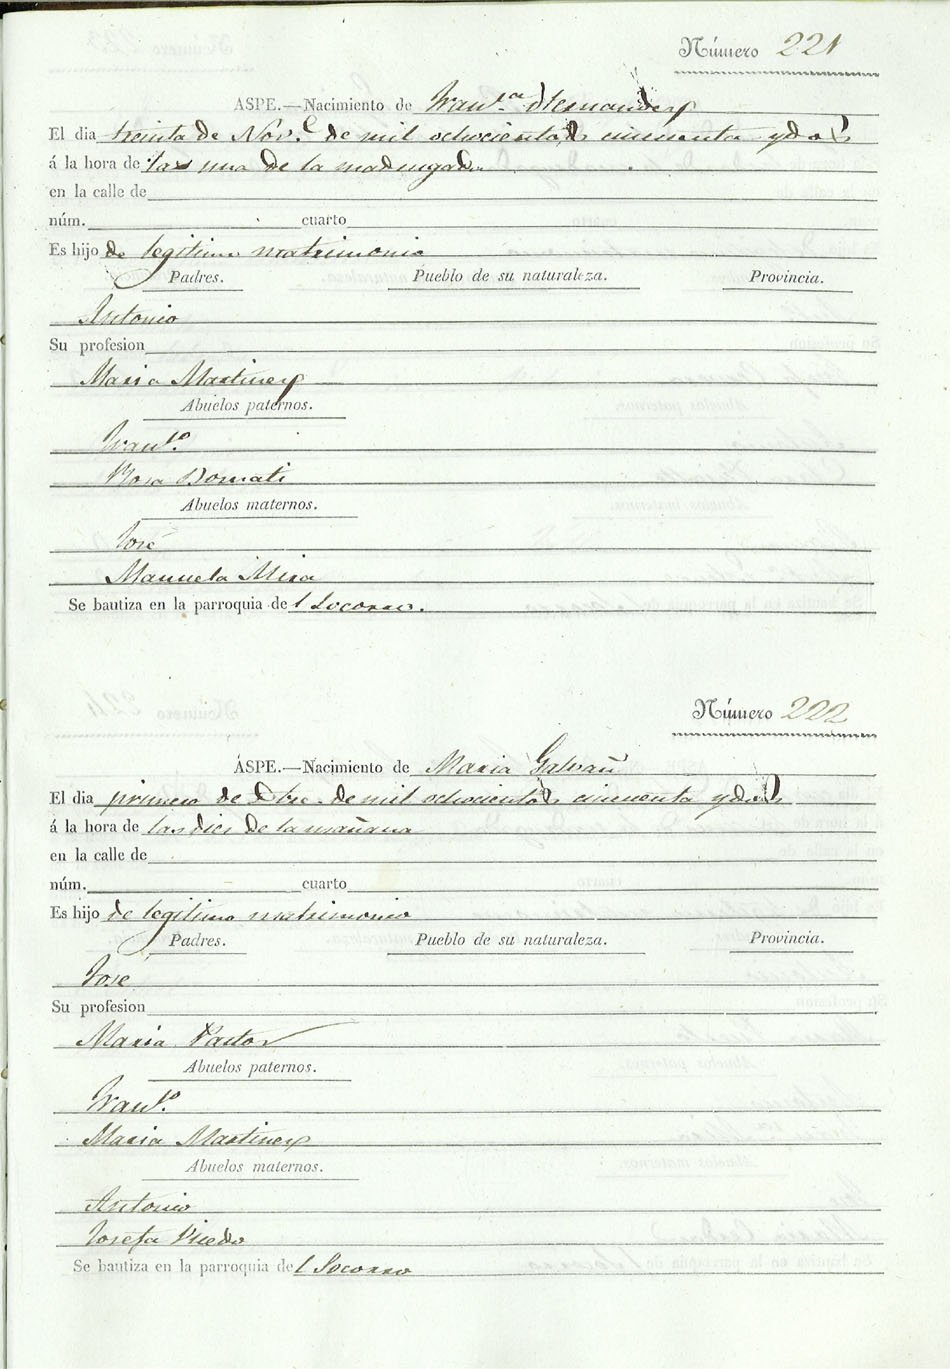 Número 221
ASPE.—Nacimiento de Fran.ca Hernandez
El dia treinta de Nov.e de mil ochocientos cincuenta y dos
á la hora de las una de la madrugada
en la calle de
núm. cuarto
Es hijo de legitimo matrimonio
Padres. Pueblo de su naturaleza. Provincia.
Antonio
Su profesion
Maria Martinez
Abuelos paternos.
Fran.co
Rosa Bonmati
Abuelos maternos.
José
Manuela Mira
Se bautiza en la parroquia del Socorro.
Número 222
ASPE.—Nacimiento de Maria Galvañ
El dia primero de Dbre. de mil ochocientos cincuenta y dos
á la hora de las dies de la mañana
en la calle de
núm. cuarto
Es hijo de legitimo matrimonio
Padres. Pueblo de su naturaleza. Provincia.
José
Su profesion
Maria Pastor
Abuelos paternos.
Fran.co
Maria Martinez
Abuelos maternos.
Antonio
Josefa Vicedo
Se bautiza en la parroquia del Socorro